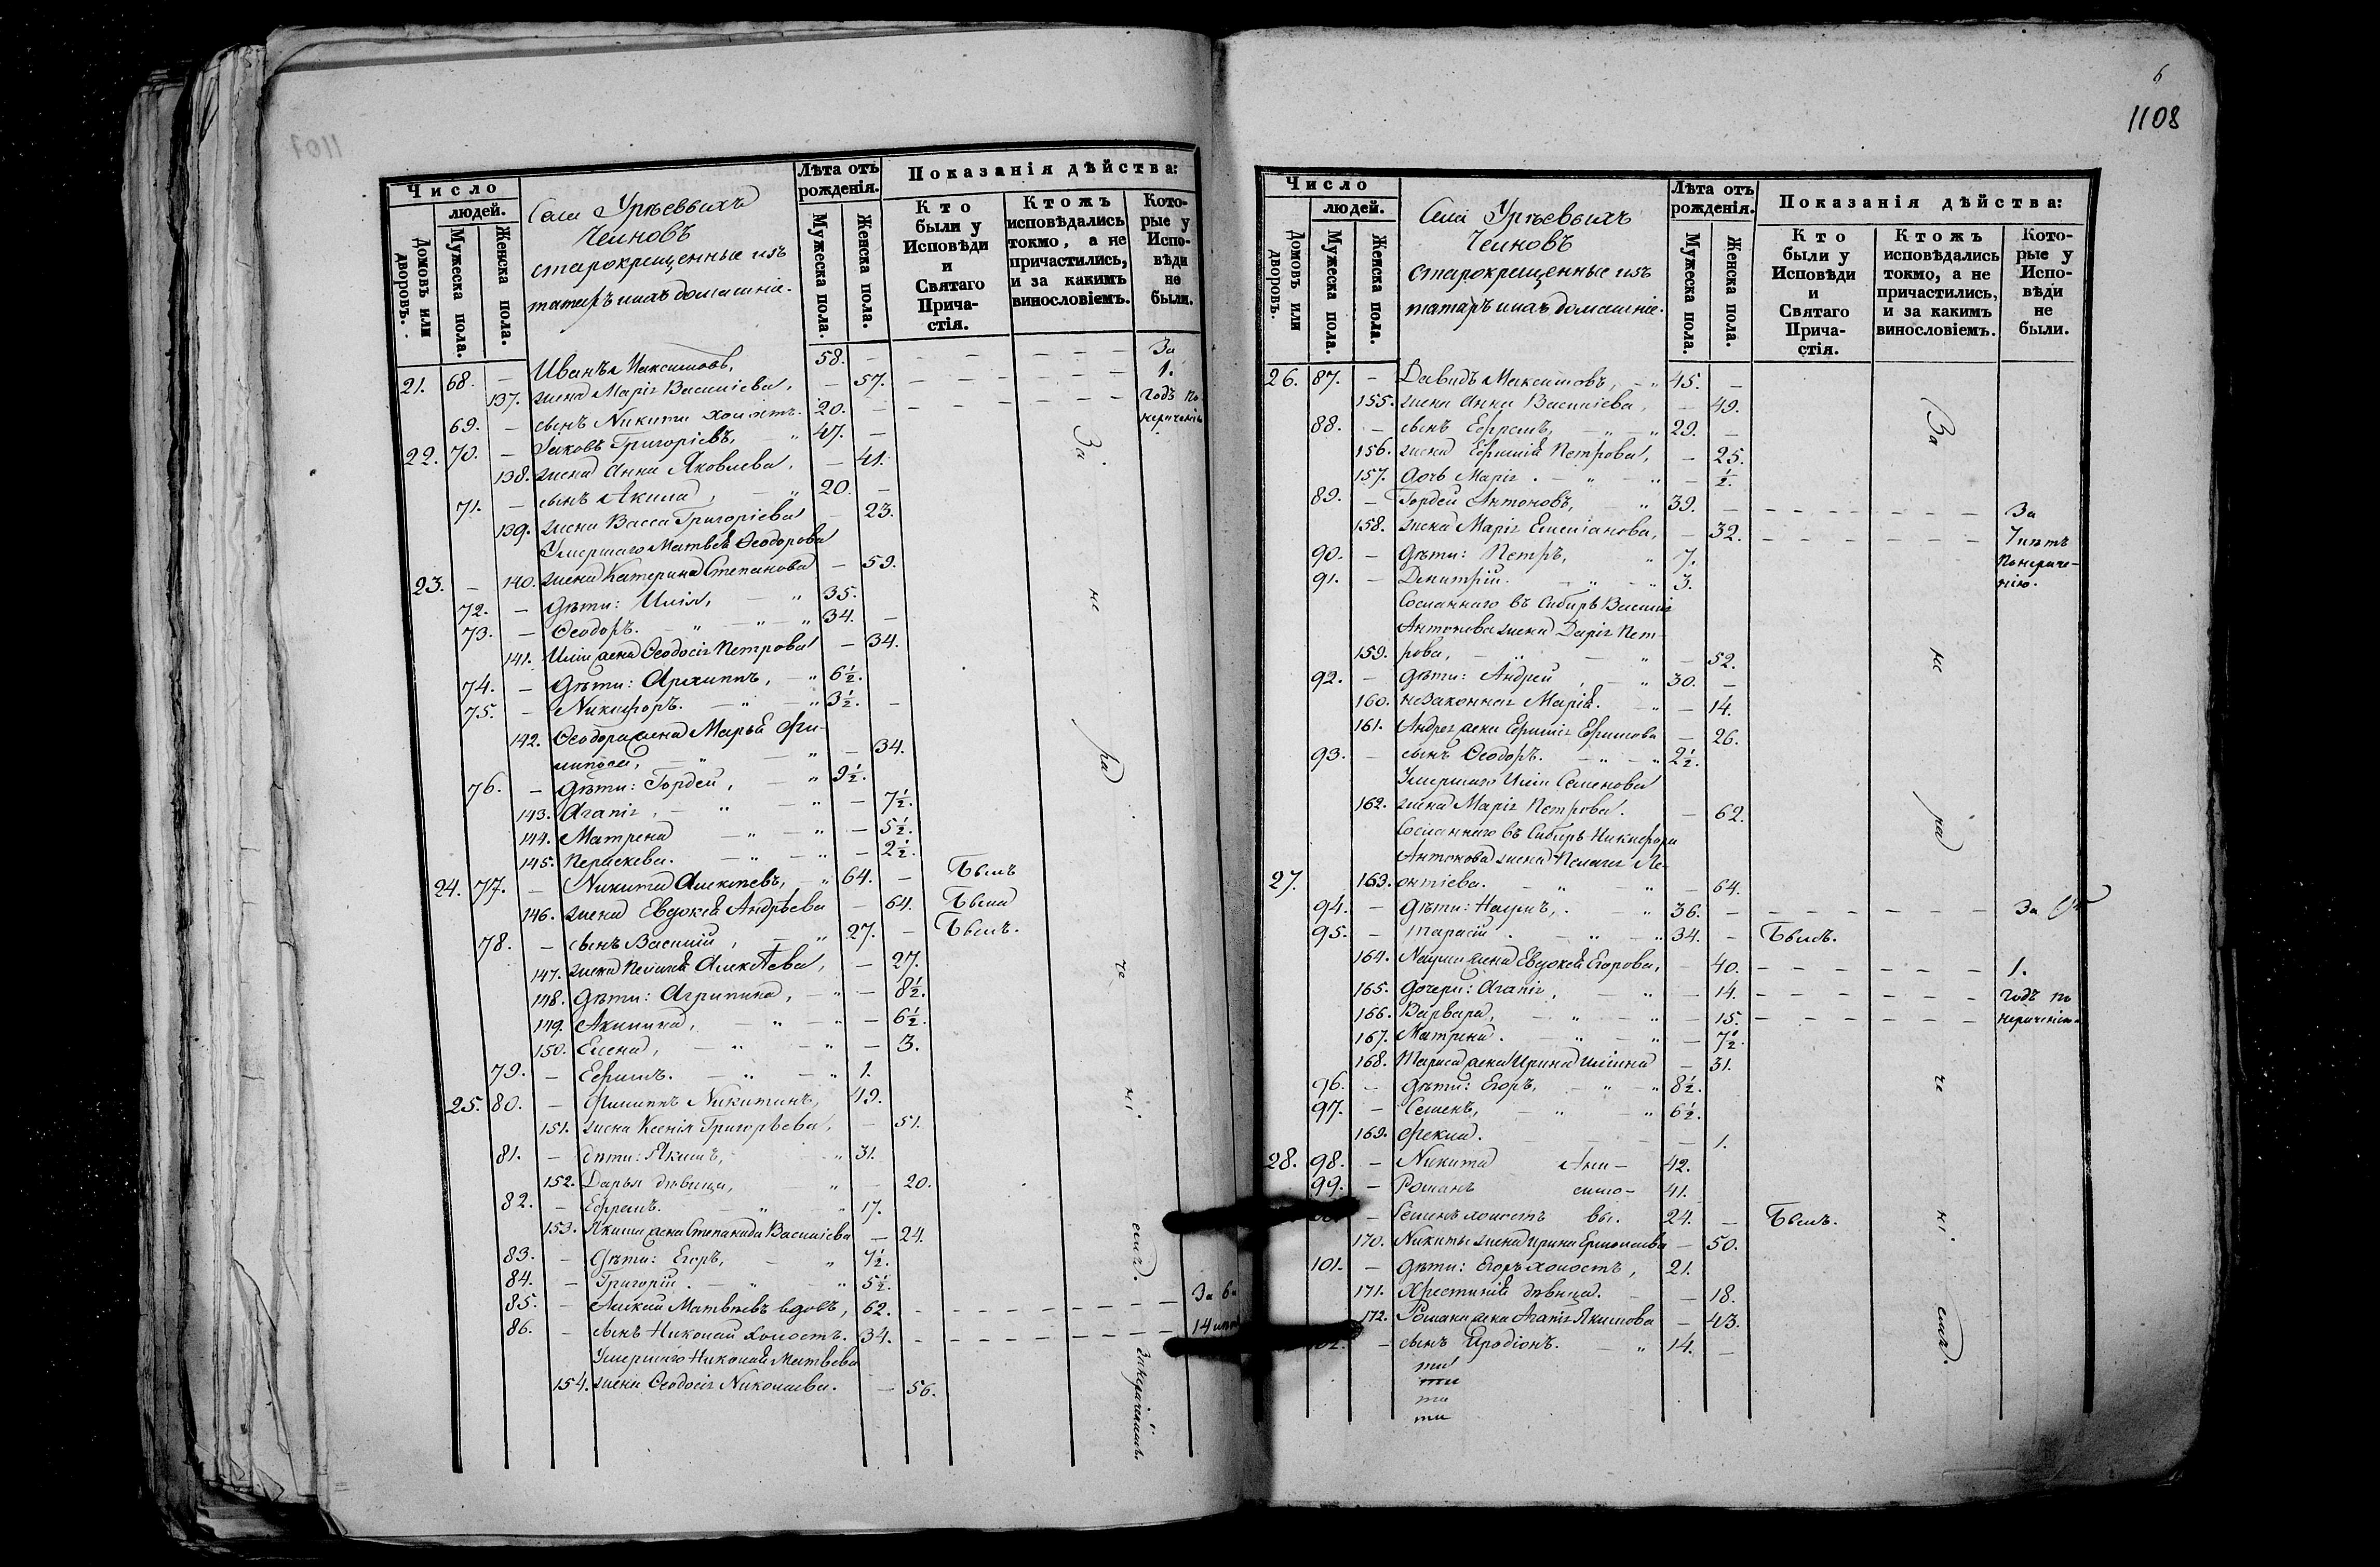 Число
людей.
Домовъ или дворовъ.
Мужеска пола.
Женска пола.
Села Урѣевыхъ
Челновъ
старокрещенные изъ
татаръ и ихъ домашніе.
Лѣта отъ рожденія.
Мужеска пола.
Женска пола.
Показанія дѣйства:
Кто были у Исповѣди и Святаго Прича-стія.
Ктожъ исповѣдались токмо, а не причастились, и за какимъ винословіемъ.
Кото-рые у Испо-вѣди не были.
21. 68. – Иванъ Максимовъ, 58. – За
137. жена Марія Василіева, – 57. 1.
69. – сынъ Никита холостъ. 20. – годъ по
22. 70. – Яковъ Григоріевъ, 47. –
138. жена Анна Яковлева, – 41.
71. – сынъ Акила, 20. –
139. жена Васса Григоріева – 23.
Умершаго Матвѣя Ѳеодорова
23. – 140. жена Катерина Степанова – 59.
72. – дѣти: Илія, 35.
73. – Ѳеодоръ. 34. –
141. Иліи жена Ѳеодосія Петрова – 34.
74. – дѣти: Архиппъ, 6½.
75. – Никифоръ. 3½. –
142. Ѳеодора жена Марья Фи-
липова, – 34.
76. – дѣти: Гордей, 9½.
143. Агапія, – 7½.
144. Матрена – 5½.
145. Параскева. – 2½.
24. 77. – Никита Алексѣевъ, 64. – Былъ
146. жена Евдокія Андрѣева – 64. Была
78. – сынъ Василій, 27. – Былъ.
147. жена Пелагія Алексѣева, – 27.
148. дѣти: Агрипина, – 8½.
149. Акилина, – 6½.
150. Елена, – 3.
79. – Ефимъ. 1.
25. 80. – Филиппъ Никитинъ, 49.
151. жена Ксенія Григорьева, – 51.
81. – дѣти: Якимъ, 31.
152. Дарья дѣвица, – 20.
82. – Ефремъ. 17.
153. Якима жена Степанида Василіева – 24.
83. – дѣти: Егоръ, 7½.
84. – Григорій. 5½.
85. – Матвѣевъ вдовъ, 62. – За
86. – сынъ Николай холостъ. 34. – 14
Умершаго Николая Матвѣева
154. жена Ѳеодосія Николаева. – 56.
За не ра че ні емъ.
6
1108
Число
людей.
Домовъ или дворовъ.
Мужеска пола.
Женска пола.
Села Урѣевыхъ
Челновъ
старокрещенные изъ
татаръ и ихъ домашніе.
Лѣта отъ рожденія.
Мужеска пола.
Женска пола.
Показанія дѣйства:
Кто были у Исповѣди и Святаго Прича-стія.
Ктожъ исповѣдались токмо, а не причастились, и за какимъ винословіемъ.
Кото-рые у Испо-вѣди не были.
26. 87. – Давидъ Максимовъ, 45. –
155. жена Анна Василіева, – 49.
88. – сынъ Ефремъ, 29. –
156. жена Евфимія Петрова, – 25.
157. дочь Марія. – ½.
89. – Гордей Антоновъ, 39. – За
158. жена Марія Емеліанова, – 32. 7 лѣтъ
90. – дѣти: Петръ, 7. по нераче-
91. – Димитрій. 3. нію.
Сосланнаго въ Сибирь Василія
Антонова жена Дарія Пет-
159. рова, – 52.
92. – дѣти: Андрей, 30. –
160. незаконная Марія. – 14.
161. Андрея жена Евфимія Ефимова – 26.
93. – сынъ Ѳеодоръ. 2½.
Умершаго Иліи Семенова
162. жена Марія Петрова. – 62.
Сосланнаго въ Сибирь Никифора
Антонова жена Пелагія Ле-
27. 163. онтіева. – 64.
94. – дѣти: Наумъ, 36. – За
95. – Тарасій. 34. – Былъ.
164. Наума жена Евдокія Егорова, – 40. 1.
165. дочери: Агапія, – 14. годъ по
166. Варвара, – 15.
167. Матрена. – 7½.
168. Тараса жена Ирина Ильина – 31.
96. – дѣти: Егоръ, 8½.
97. – Семенъ, 6½.
169. Фекла. – 1.
28. 98. – Никита Ани- 42.
99. – Романъ симо- 41.
– Семенъ холостъ вы. 24. – Былъ.
170. Никиты жена Ирина Ермолаева – 50.
101. – дѣти: Егоръ холостъ, 21.
171. Христинія дѣвица. – 18.
172. Романа жена Агапія Якимова – 43.
102. – сынъ Иродіонъ. 14. –
За не ра че ні емъ.